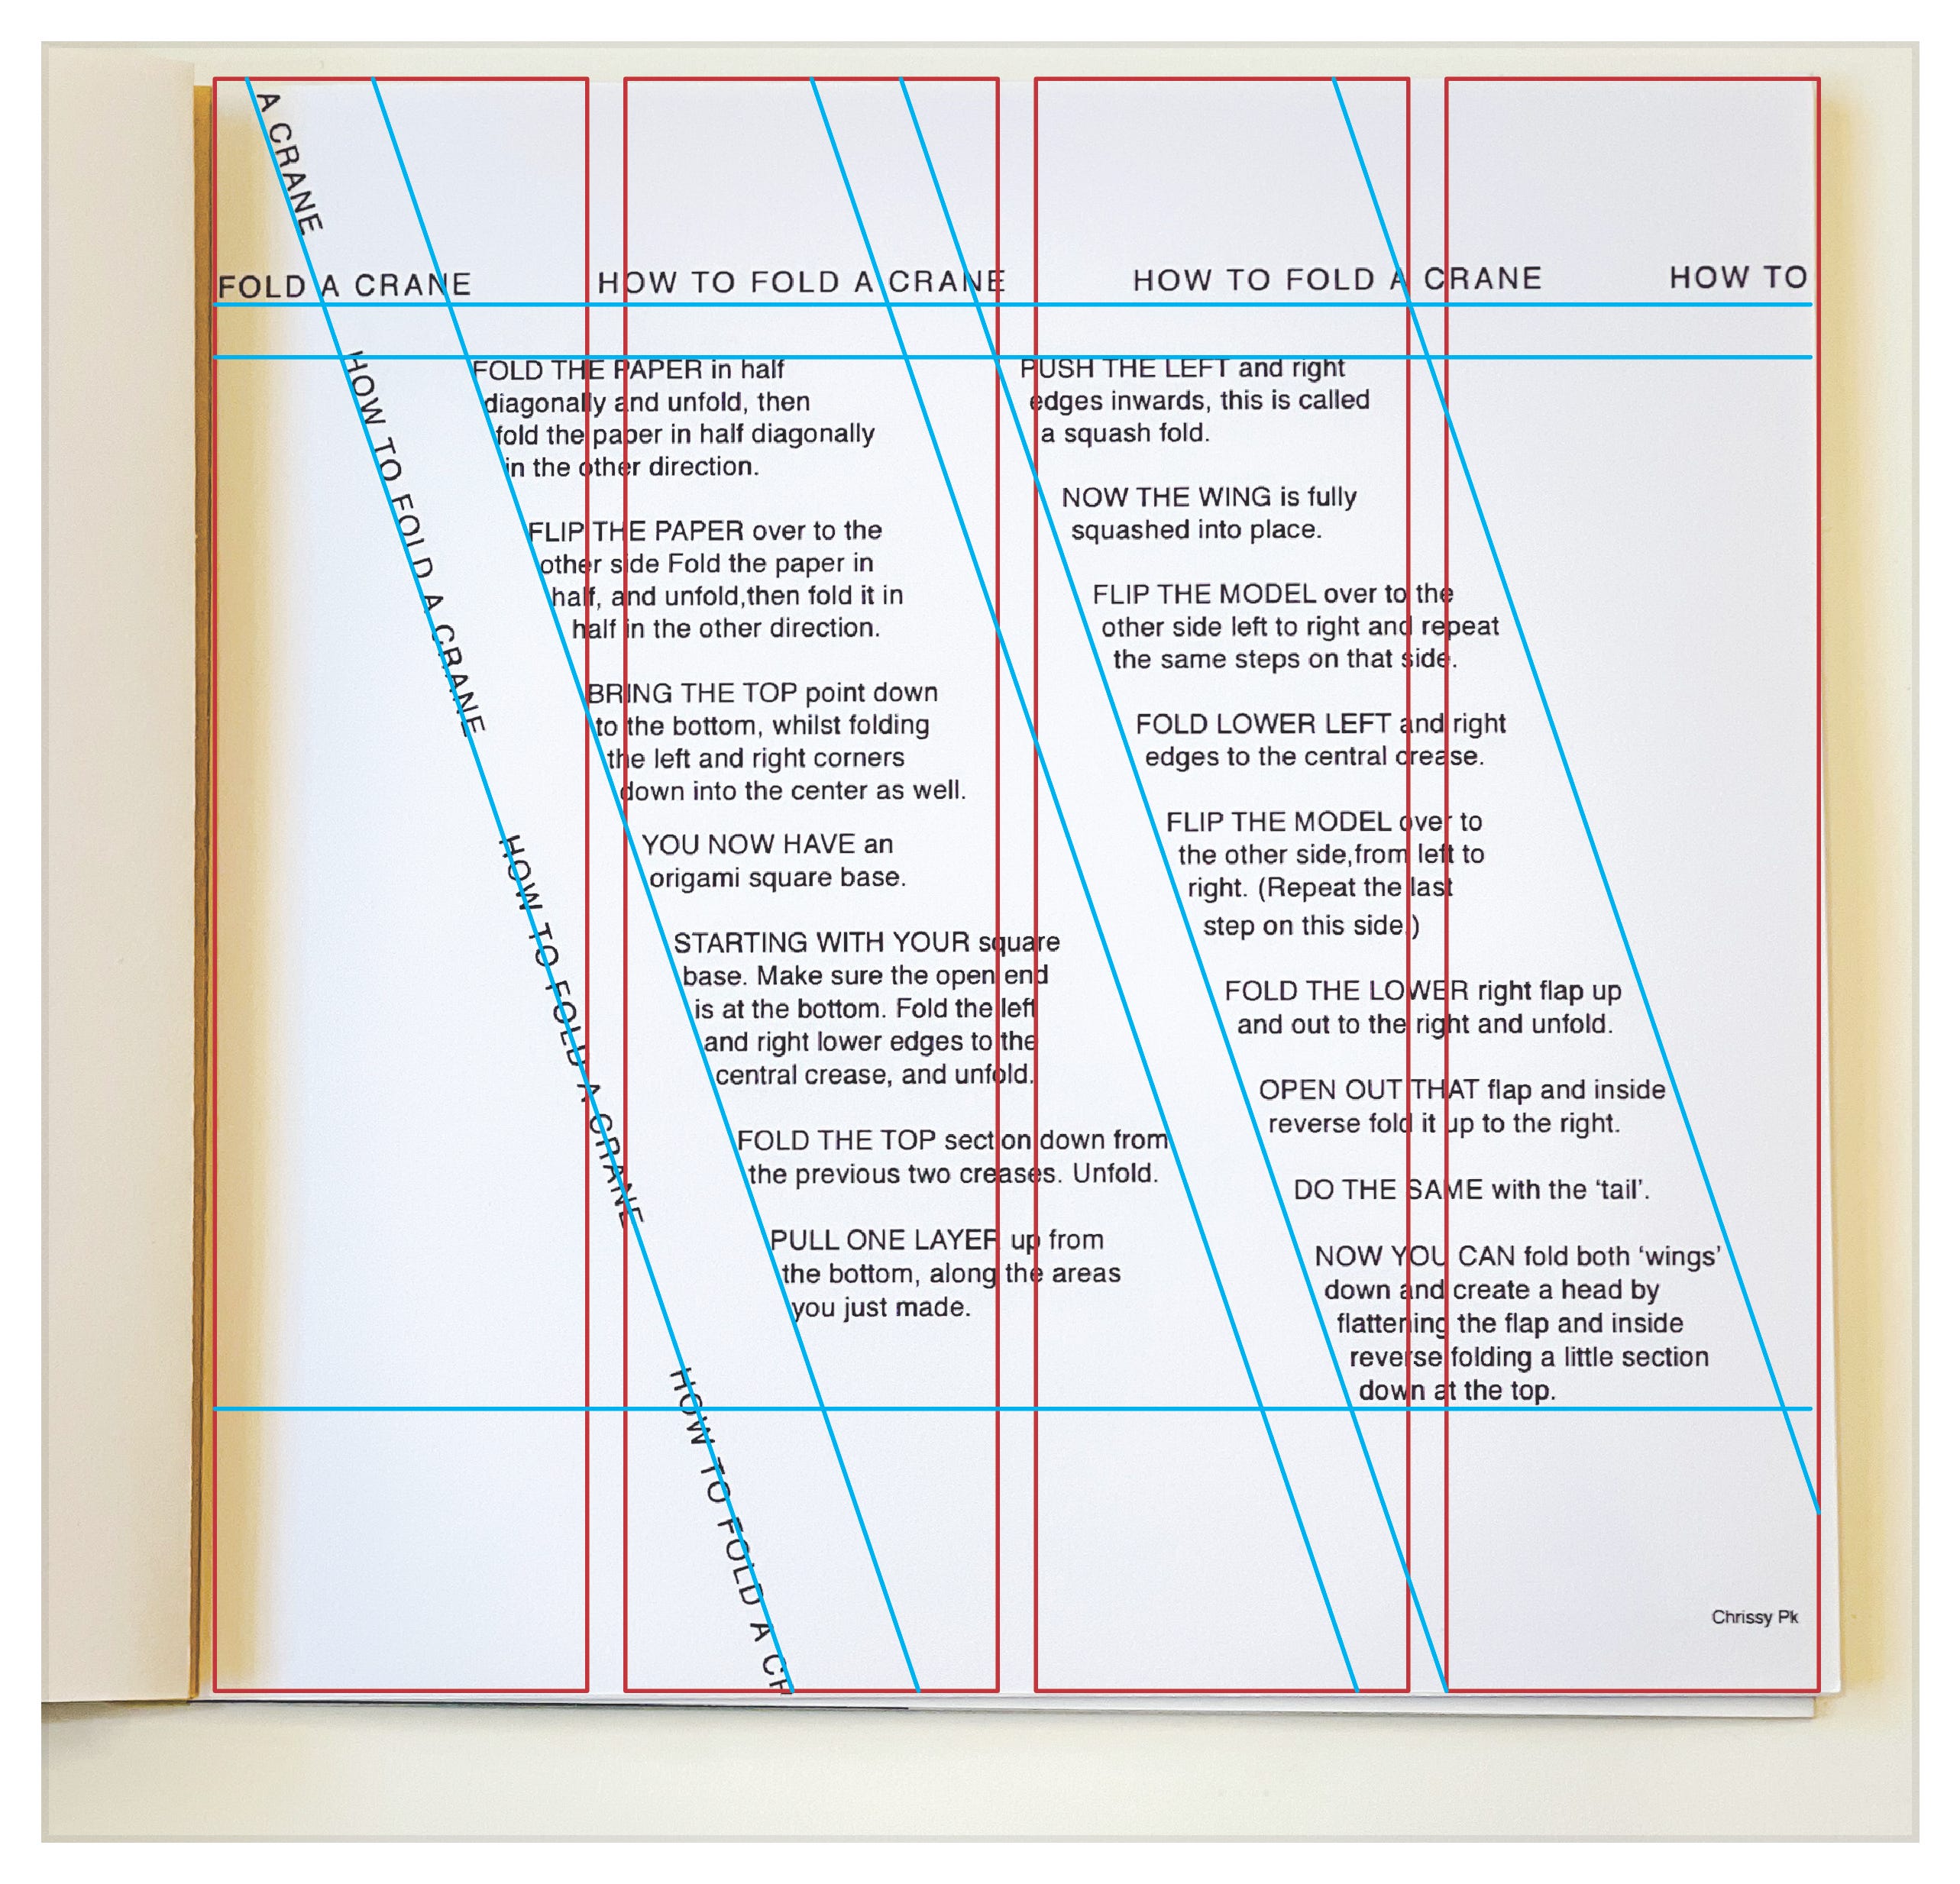 A CRANE
HOW TO FOLD A CRANE
HOW TO FOLD A CRANE
HOW TO FOLD A CR
FOLD A CRANE HOW TO FOLD A CRANE HOW TO FOLD A CRANE HOW TO
FOLD THE PAPER in half
diagonally and unfold, then
fold the paper in half diagonally
in the other direction.
FLIP THE PAPER over to the
other side Fold the paper in
half, and unfold,then fold it in
half in the other direction.
BRING THE TOP point down
to the bottom, whilst folding
the left and right corners
down into the center as well.
YOU NOW HAVE an
origami square base.
STARTING WITH YOUR square
base. Make sure the open end
is at the bottom. Fold the left
and right lower edges to the
central crease, and unfold.
FOLD THE TOP section down from
the previous two creases. Unfold.
PULL ONE LAYER up from
the bottom, along the areas
you just made.
PUSH THE LEFT and right
edges inwards, this is called
a squash fold.
NOW THE WING is fully
squashed into place.
FLIP THE MODEL over to the
other side left to right and repeat
the same steps on that side.
FOLD LOWER LEFT and right
edges to the central crease.
FLIP THE MODEL over to
the other side,from left to
right. (Repeat the last
step on this side.)
FOLD THE LOWER right flap up
and out to the right and unfold.
OPEN OUT THAT flap and inside
reverse fold it up to the right.
DO THE SAME with the ‘tail’.
NOW YOU CAN fold both ‘wings’
down and create a head by
flattening the flap and inside
reverse folding a little section
down at the top.
Chrissy Pk